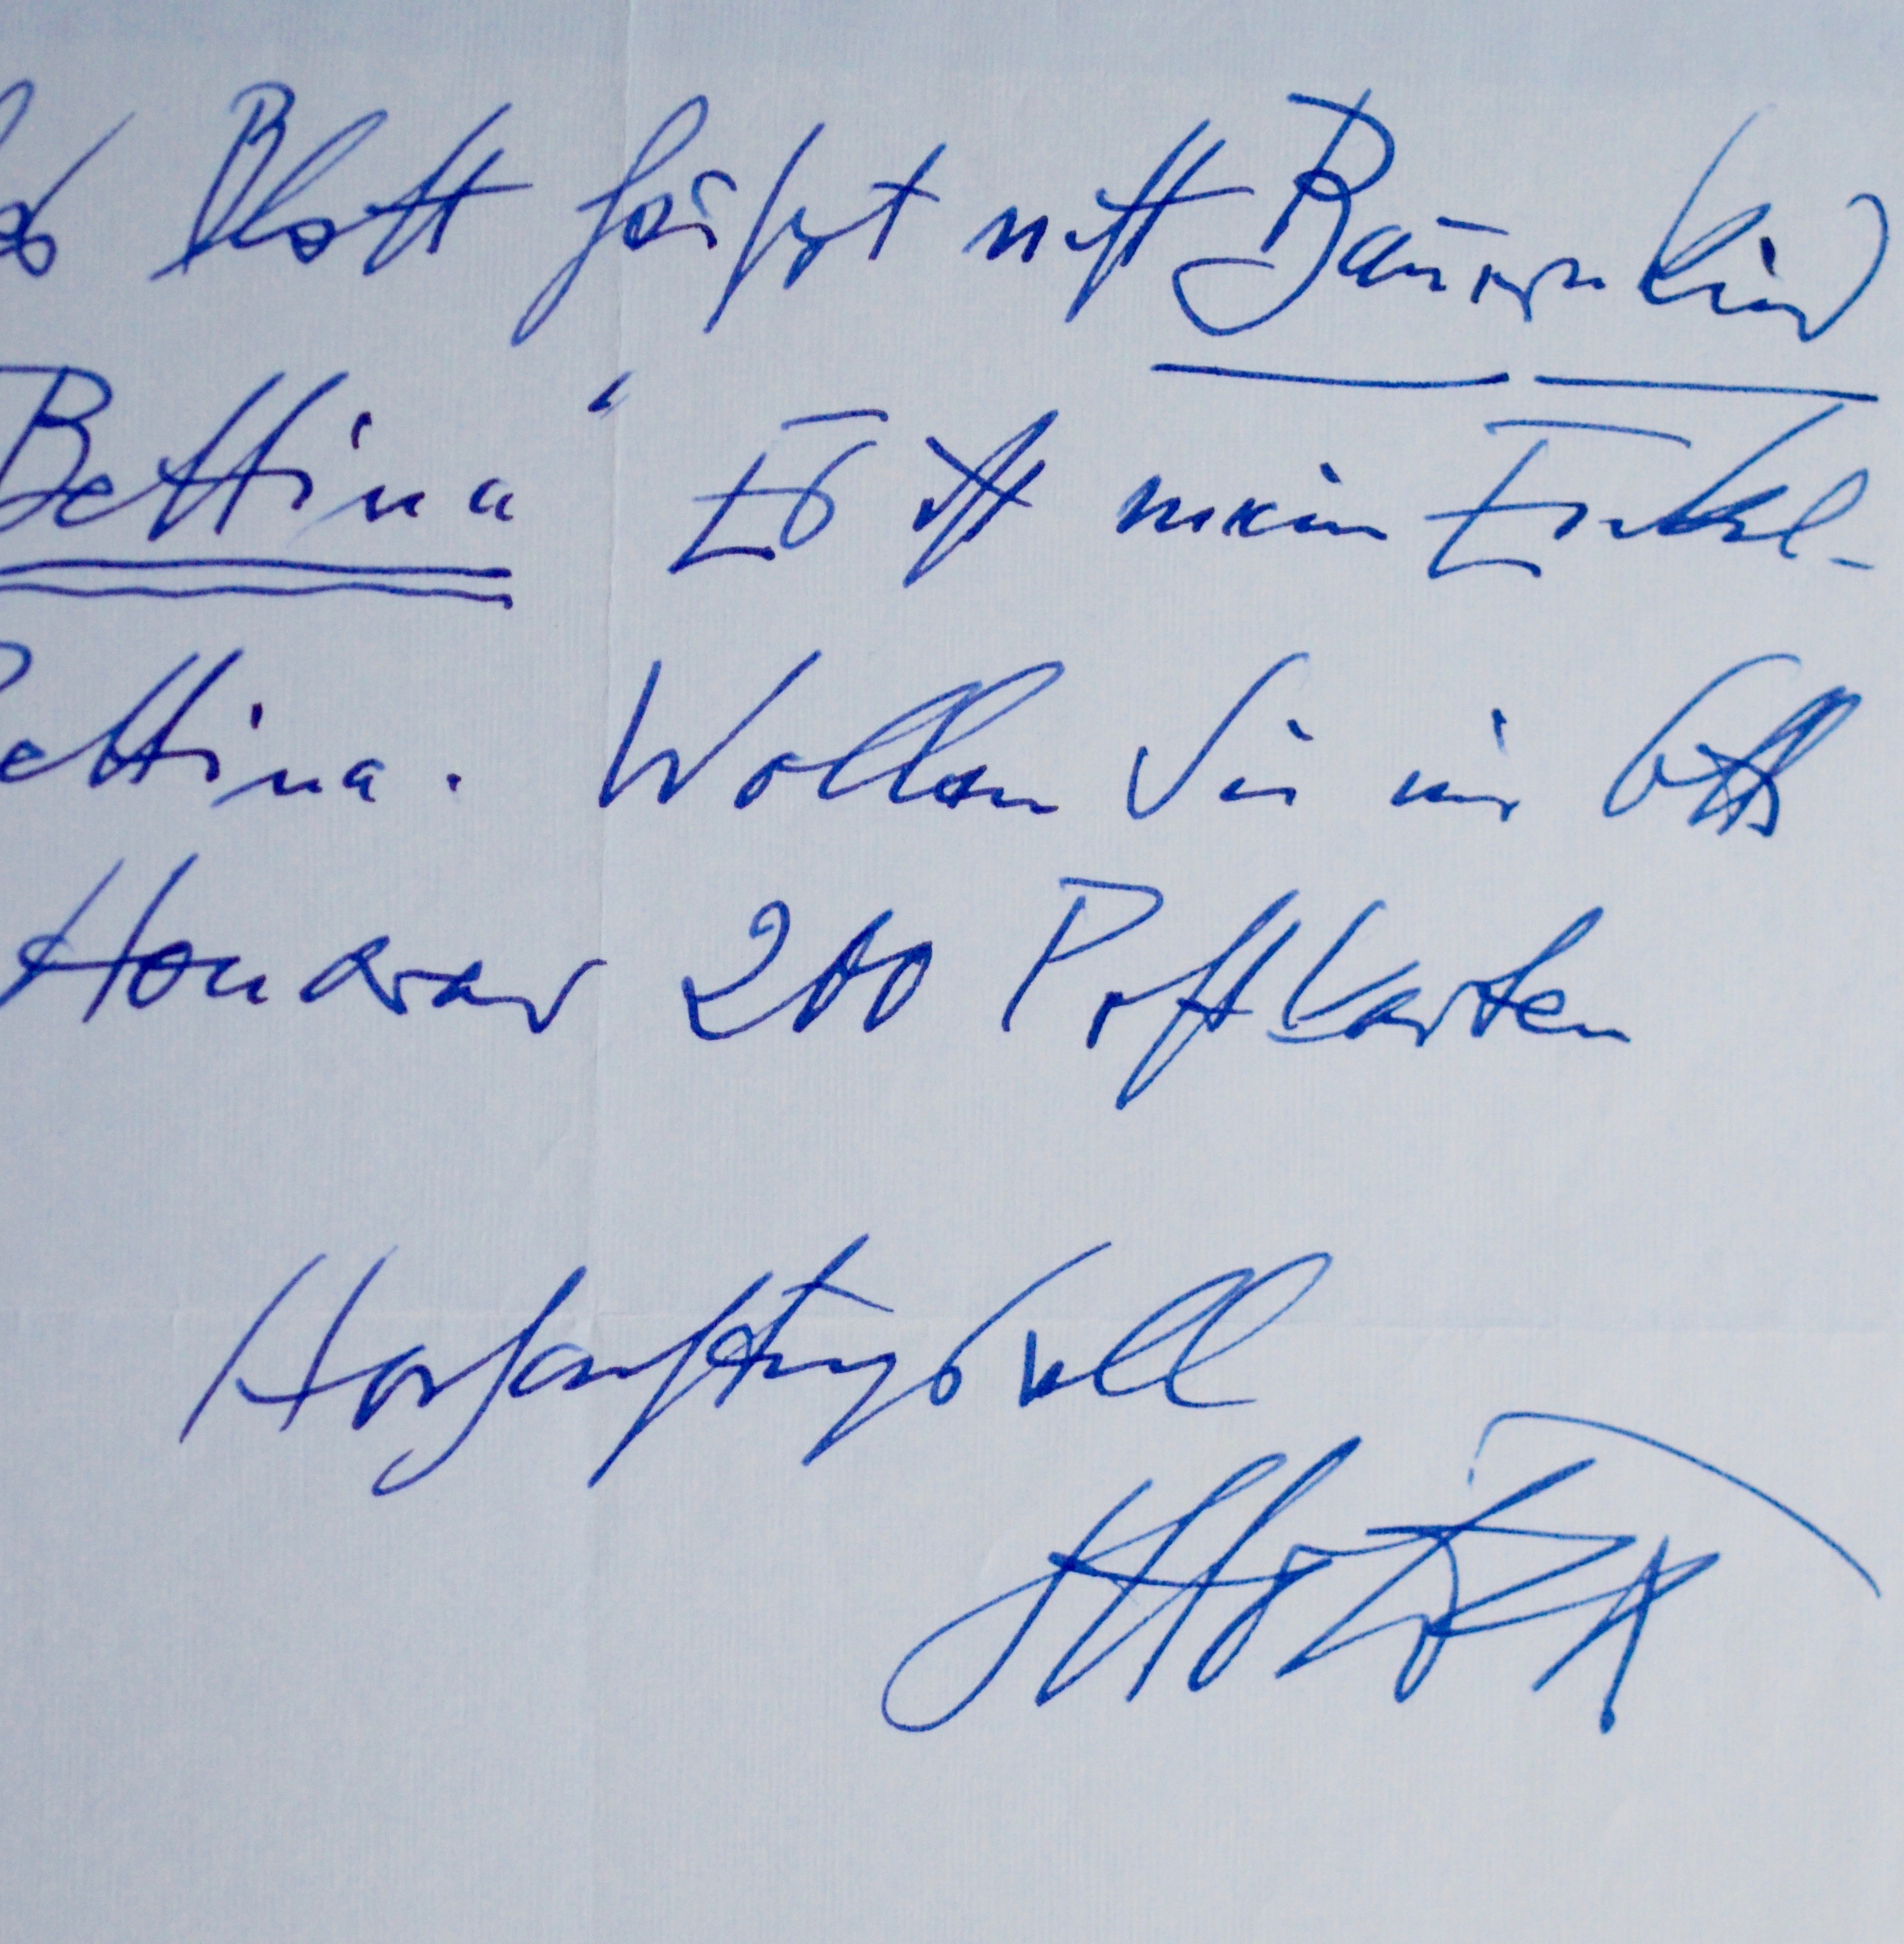 Blatt heißt nicht Bauernkind
Bettina" Es ist mein Enkel-
ettina. Wollen Sie mir bitte
Honorar 200 Postkarten
Hochachtungsvoll